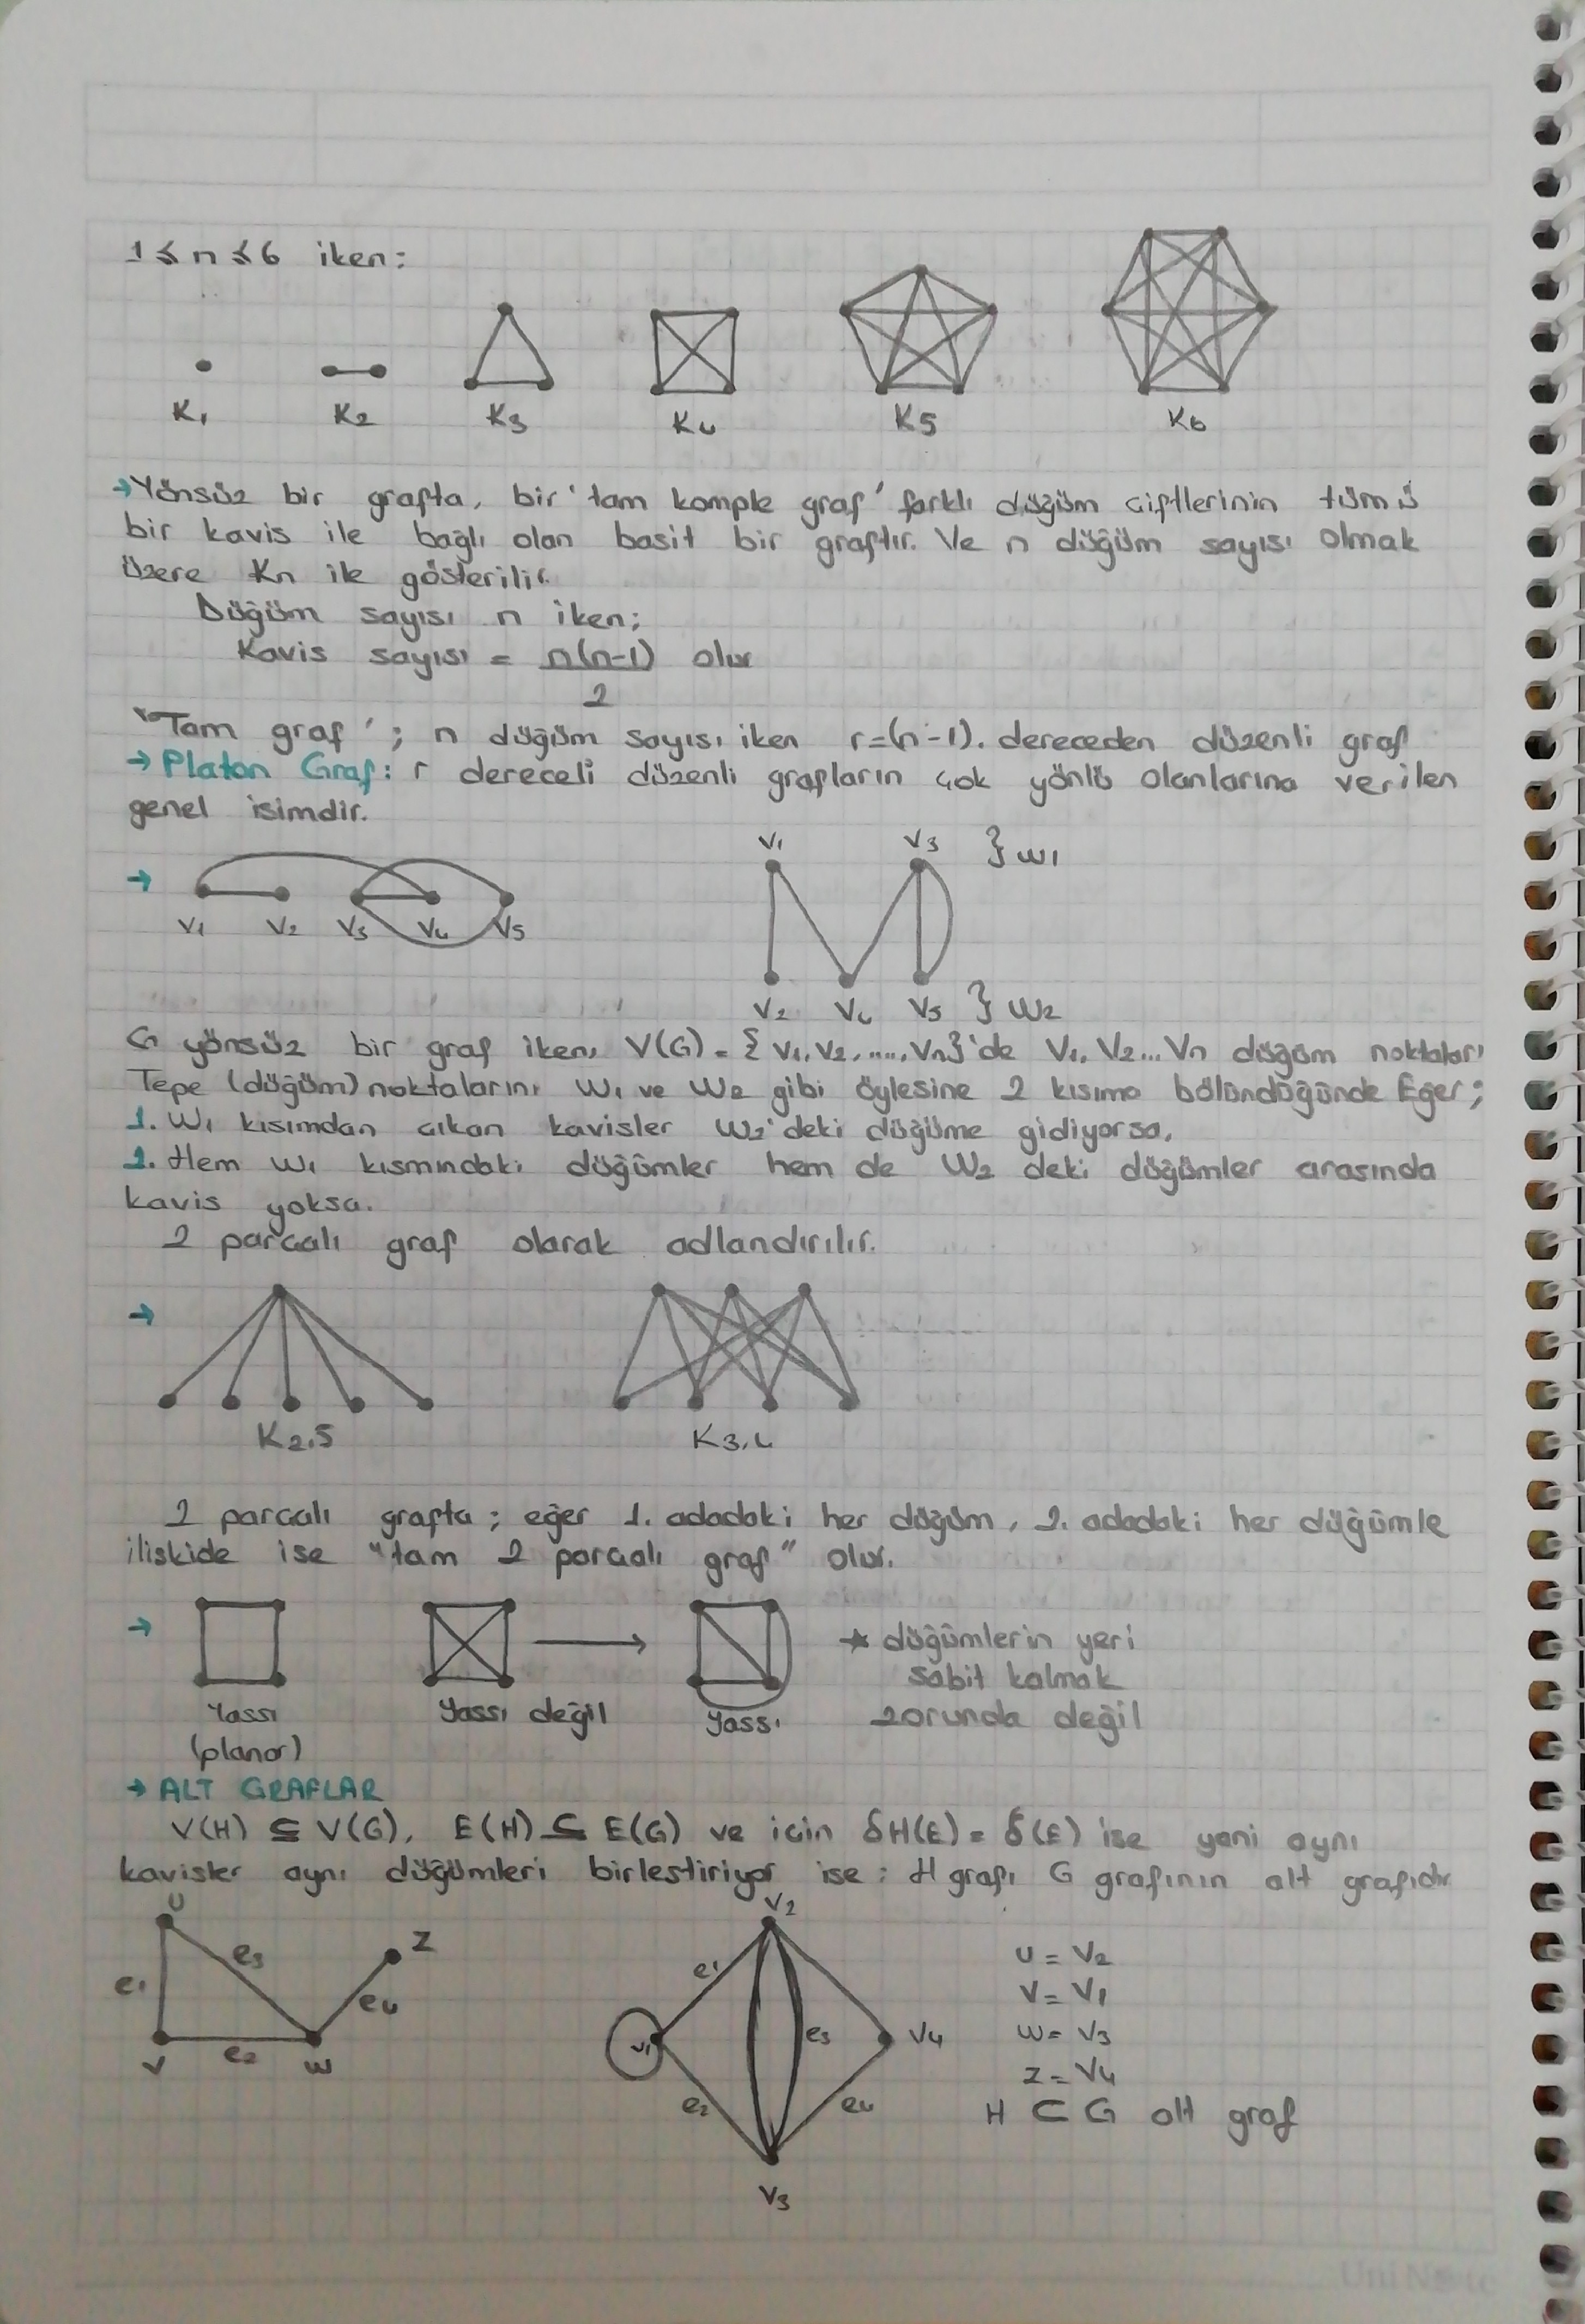 1 ≤ n ≤ 6 iken:
K1 K2 K3 K4 K5 K6
→ Yönsüz bir grafta, bir 'tam komple graf' farklı düğüm çiftlerinin tümü
bir kavis ile bağlı olan basit bir graftır. Ve n düğüm sayısı olmak
üzere Kn ile gösterilir.
Düğüm sayısı n iken;
Kavis sayısı = n(n-1) olur
2
"Tam graf"; n düğüm sayısı iken r=(n-1). dereceden düzenli graf
→ Platon Graf: r dereceli düzenli grafların çok yönlü olanlarına verilen
genel isimdir.
V1 V3 } W1
→
V1 V2 V3 V4 V5
V2 V4 V5 } W2
G yönsüz bir graf iken, V(G) = {V1, V2, ...., Vn}'de V1, V2... Vn düğüm noktaları
Tepe (düğüm) noktalarını W1 ve W2 gibi öylesine 2 kısıma bölündüğünde Eğer;
1. W1 kısımdan çıkan kavisler W2'deki düğüme gidiyorsa,
2. Hem W1 kısmındaki düğümler hem de W2 deki düğümler arasında
kavis yoksa.
2 parçalı graf olarak adlandırılır.
→
K2,5 K3,4
2 parçalı grafta; eğer 1. adadaki her düğüm, 2. adadaki her düğümle
iliskide ise "tam 2 parçalı graf" olur.
→
★ düğümlerin yeri
sabit kalmak
zorunda değil
Yassı Yassı değil Yassı
(planar)
→ ALT GRAFLAR
V(H) ⊆ V(G), E(H) ⊆ E(G) ve için δH(E) = δ(E) ise yani aynı
kavisler aynı düğümleri birlestiriyor ise: H grafı G grafının alt grafıdır
U V2
e3 Z e1 U = V2
e1 e4 V = V1
V1 e3 V4 W = V3
V e2 W Z = V4
e2 e4 H ⊂ G alt graf
V3
Uni Note